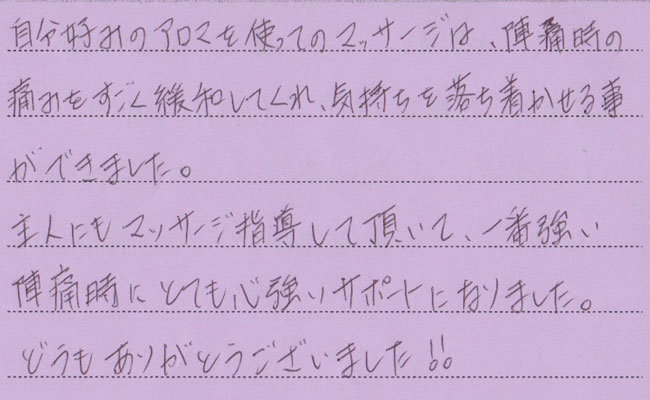 自分好みのアロマを使ってのマッサージは、陣痛時の
痛みをすごく緩和してくれ、気持ちを落ち着かせる事
ができました。
主人にもマッサージ指導して頂いて、一番強い
陣痛時にとても心強いサポートになりました。
どうもありがとうございました!!